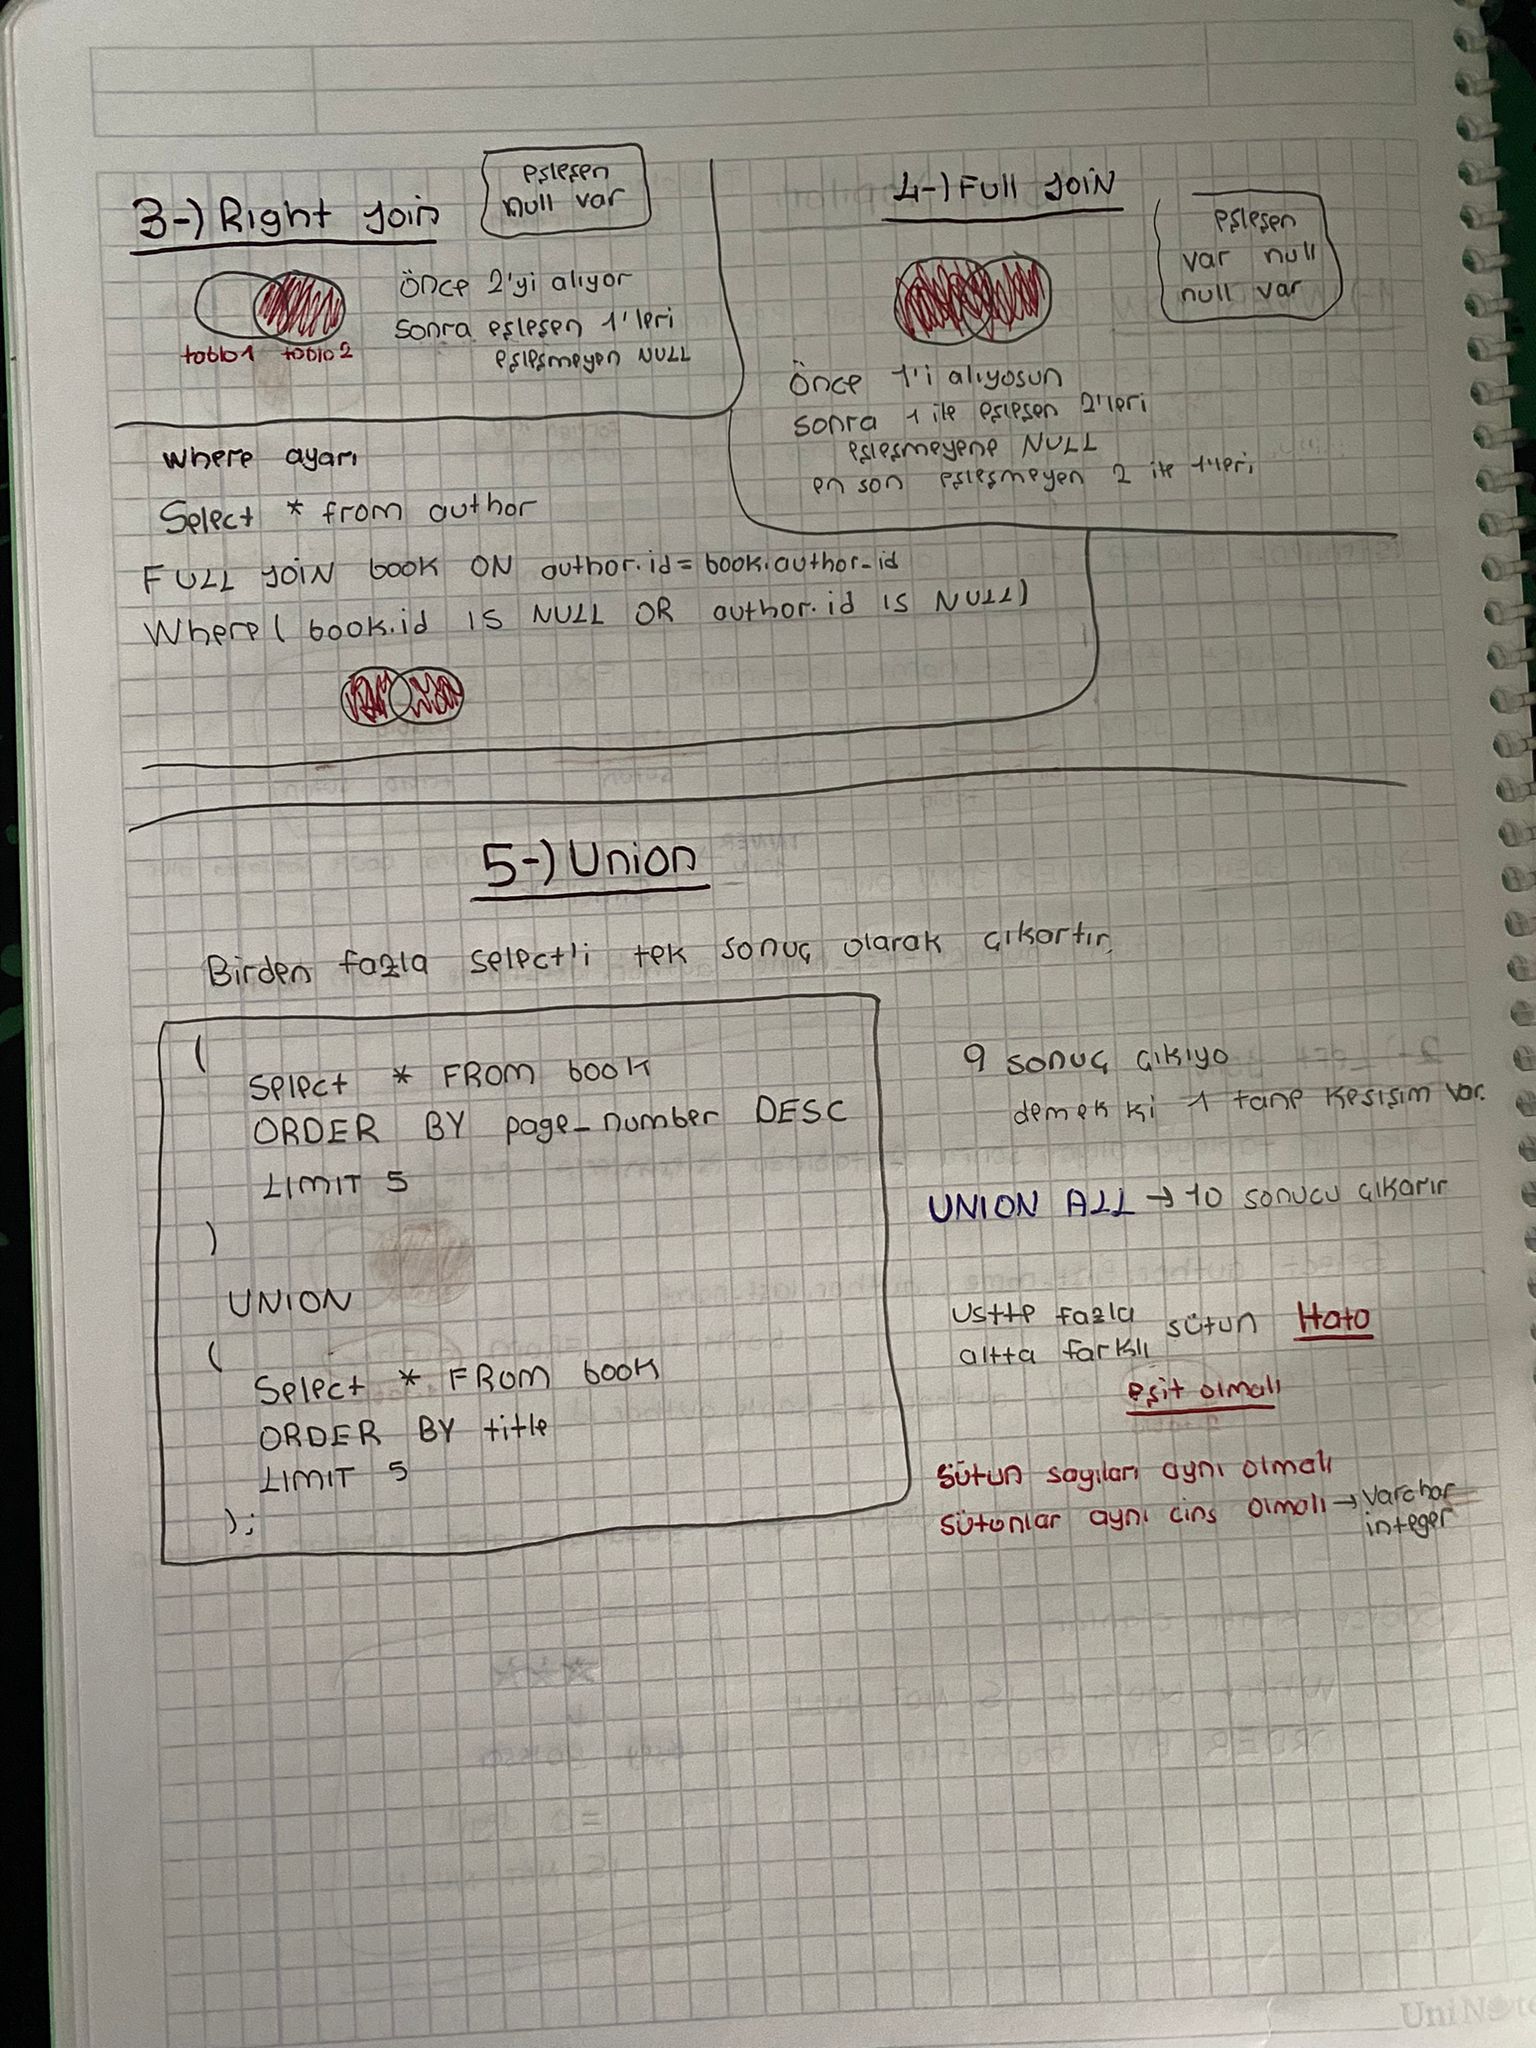 3-) Right join
eşleşen
null var
Önce 2'yi alıyor
sonra eşleşen 1'leri
eşleşmeyen NULL
tablo1 tablo2
4-) Full join
eşleşen
var null
null var
Önce 1'i alıyosun
sonra 1 ile eşleşen 2'leri
eşleşmeyene NULL
en son eşleşmeyen 2 ile 1'leri
where ayarı
Select * from author
FULL JOIN book ON author.id = book.author_id
Where ( book.id IS NULL OR author.id IS NULL)
5-) Union
Birden fazla select'li tek sonuç olarak çıkartır.
(
Select * FROM book
ORDER BY page_number DESC
LIMIT 5
)
UNION
(
Select * FROM book
ORDER BY title
LIMIT 5
);
9 sonuç çıkıyo
demek ki 1 tane kesişim var.
UNION ALL → 10 sonucu çıkarır
üstte fazla
altta farklı sütun Hata
eşit olmalı
sütun sayıları aynı olmalı
sütunlar aynı cins olmalı → varchar
integer